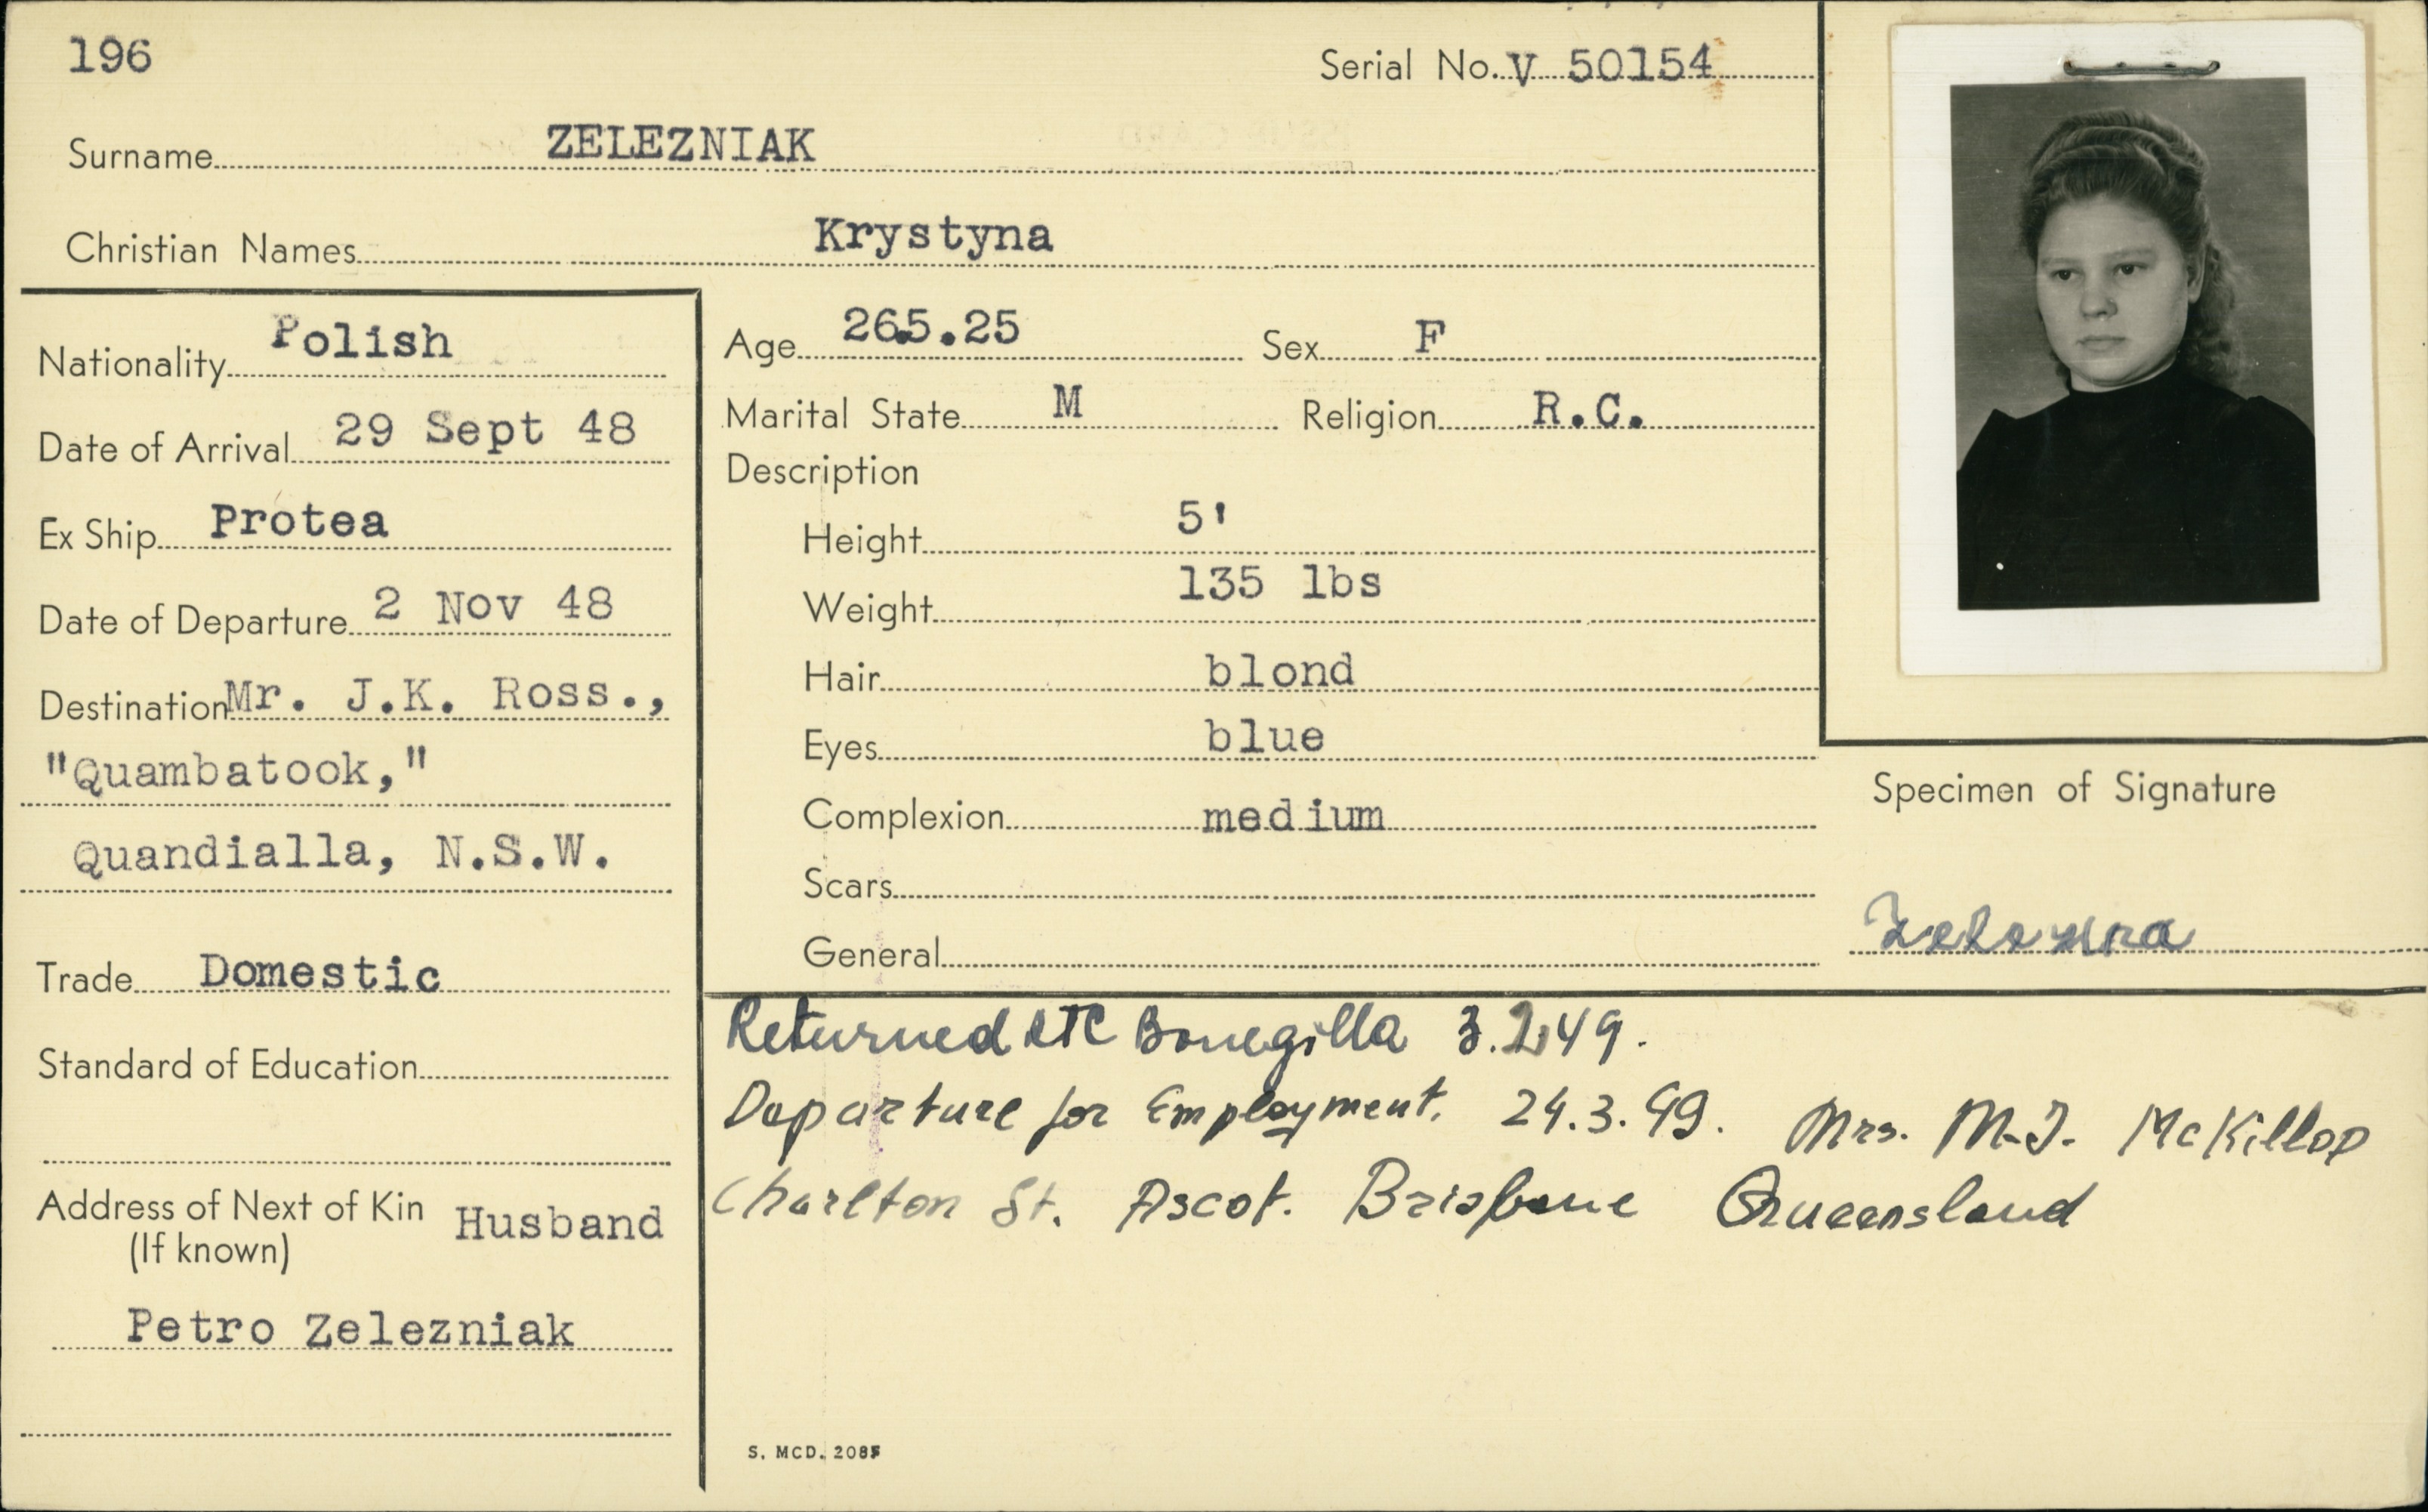 196
Serial No. V 50154
Surname ZELEZNIAK
Christian Names Krystyna
Nationality Polish
Date of Arrival 29 Sept 48
Ex Ship Protea
Date of Departure 2 Nov 48
Destination Mr. J.K. Ross.,
"Quambatook,"
Quandialla, N.S.W.
Trade Domestic
Standard of Education
Address of Next of Kin Husband
(If known)
Petro Zelezniak
Age 26.5.25 Sex F
Marital State M Religion R.C.
Description
Height 5'
Weight 135 lbs
Hair blond
Eyes blue
Complexion medium
Scars
General
Specimen of Signature
Returned RTC Bonegilla 3.2.49.
Departure for Employment. 24.3.49. Mrs. M.J. McKillop
Charlton St. Ascot. Brisbane Queensland
S. MCD. 208